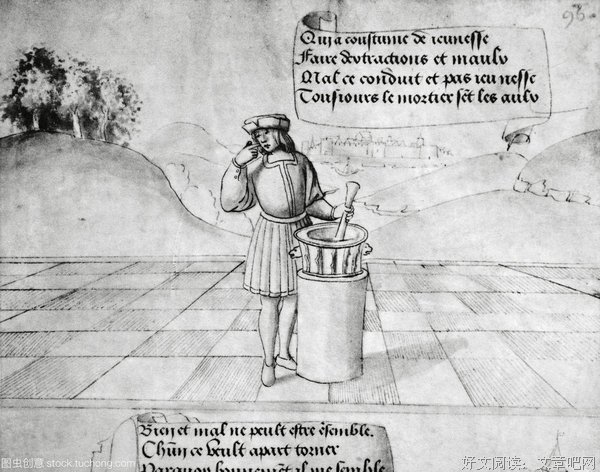 96
Qui a coustume de ieunesse
Faire detractions et maulx
Mal ce conduit et pas ieu nesse
Tousiours le mortier sẽt les aulx
Bien et mal ne peult estre ẽsemble.
Chũn ce veult a part torner
il me semble
图虫创意 stock.tuchong.com
好文阅读：文章吧网